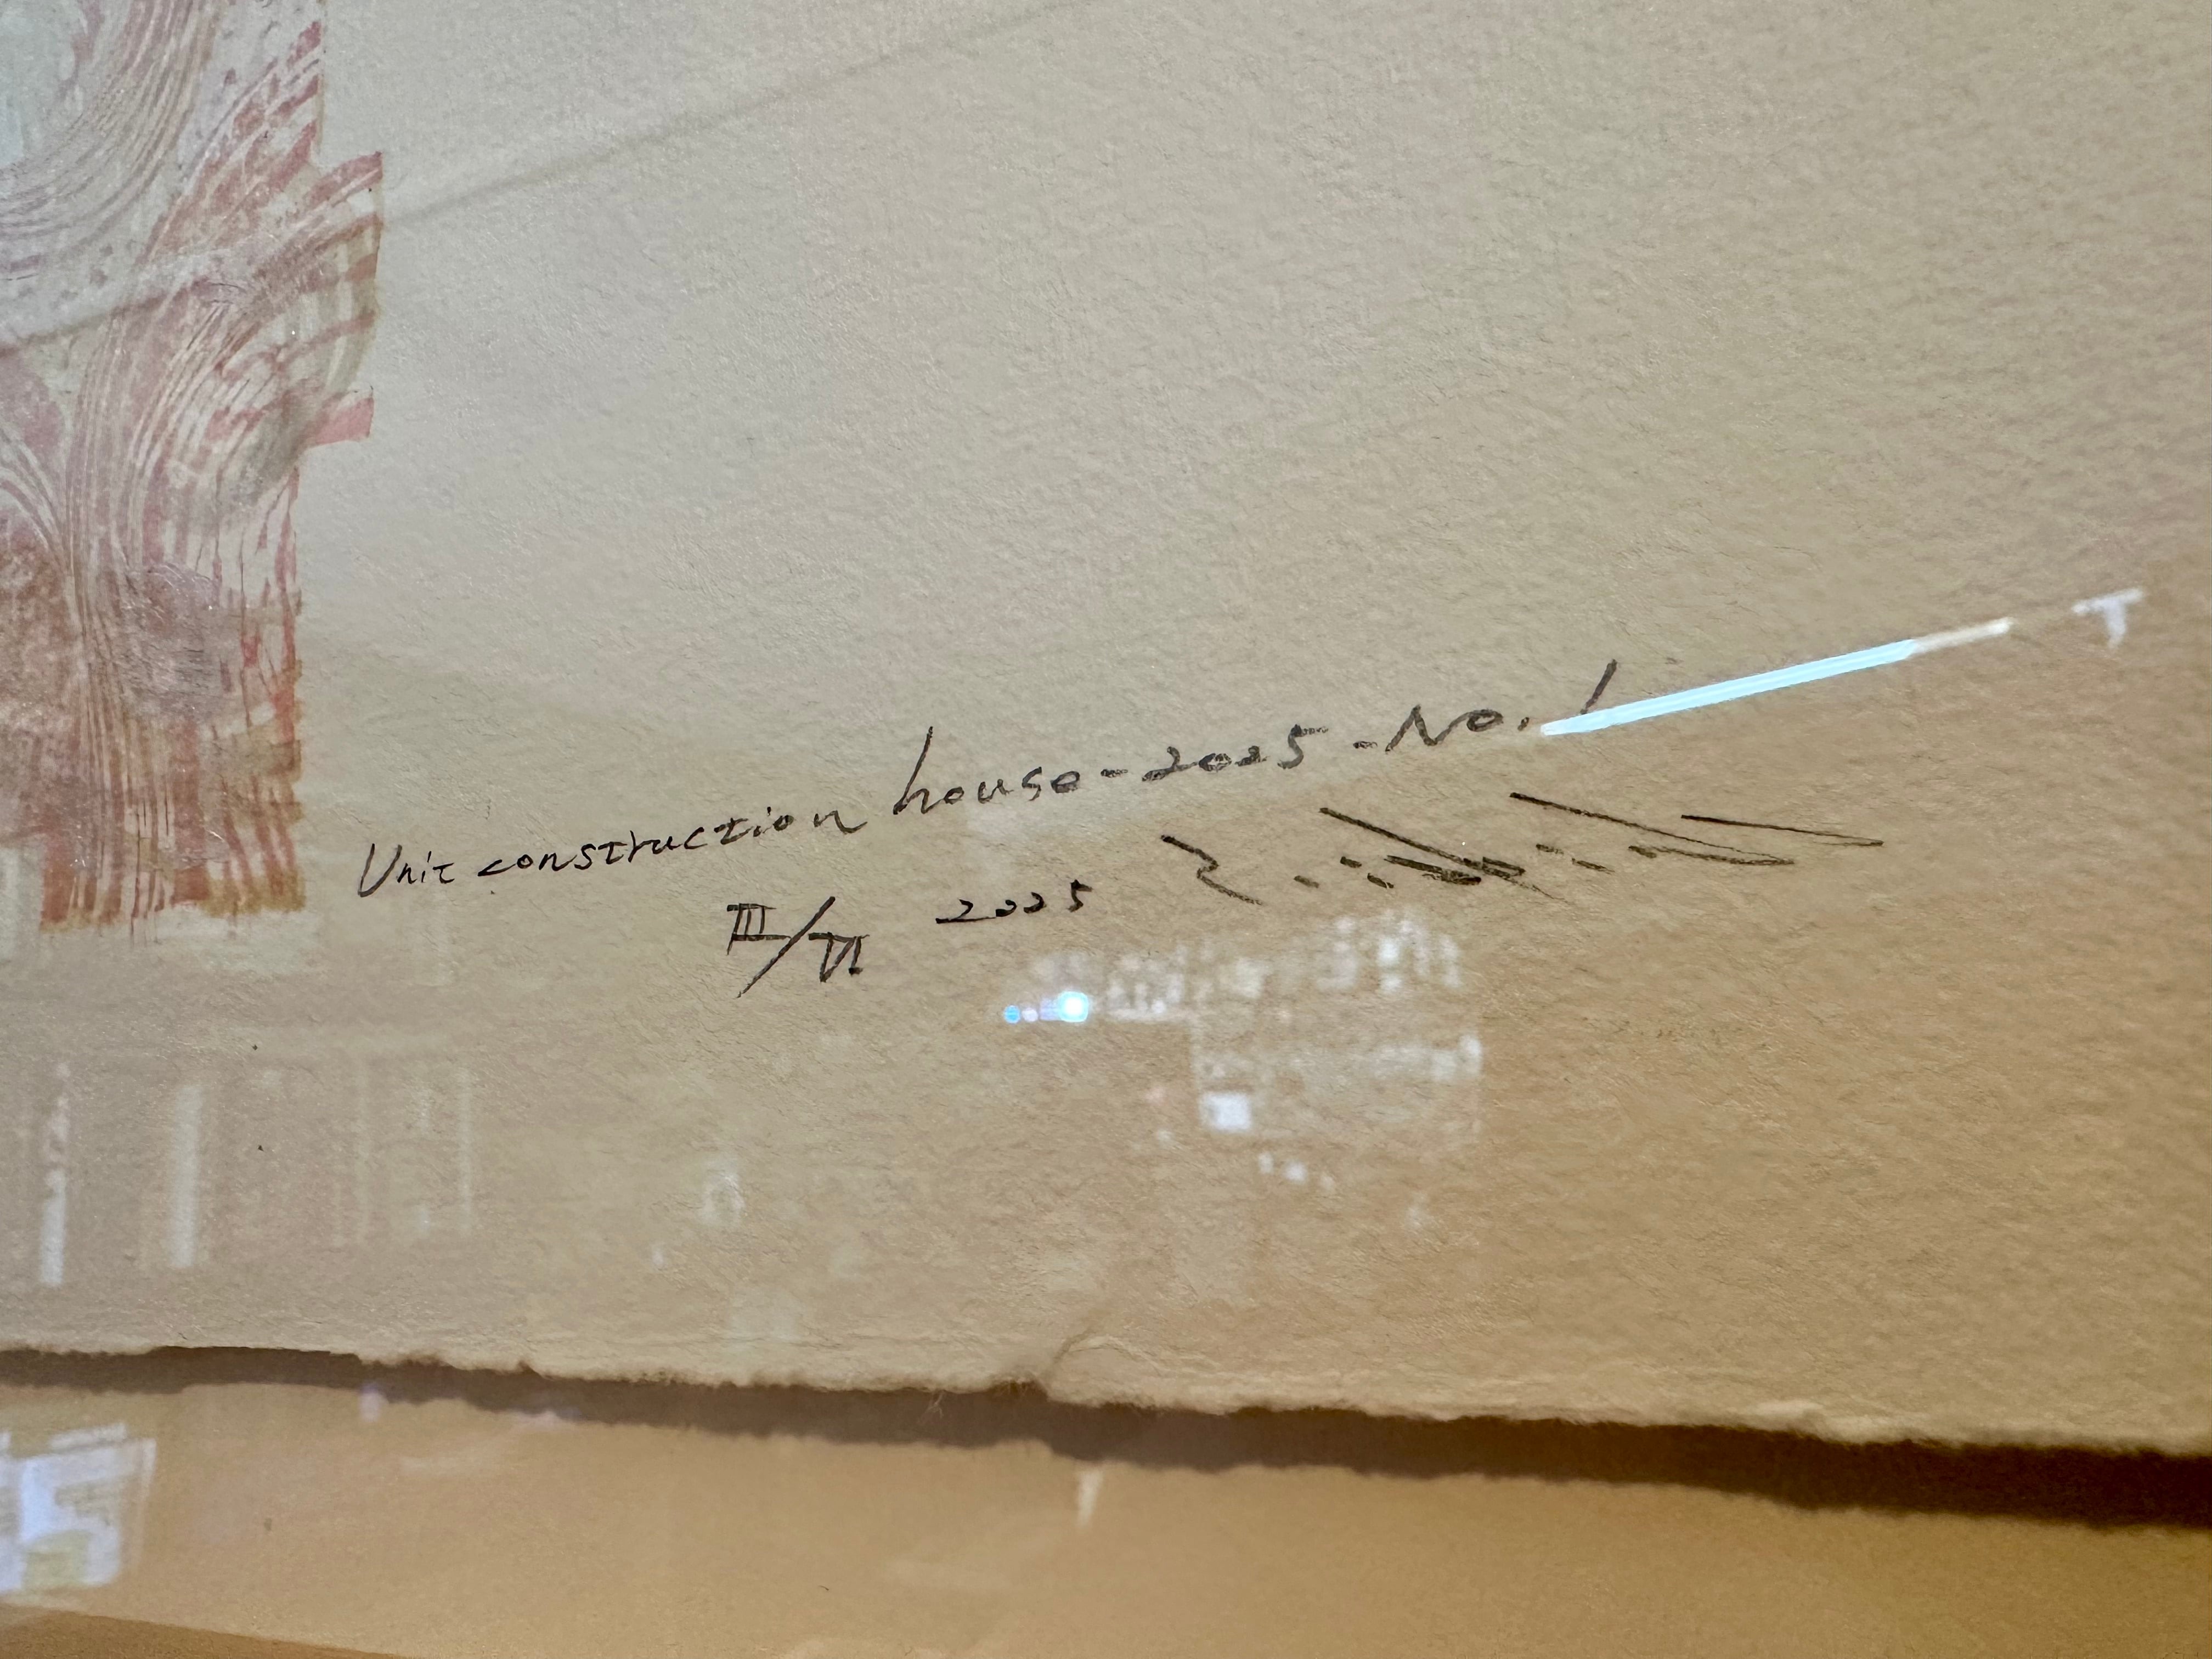 Unit construction house-2025-No.1
III/VI 2025